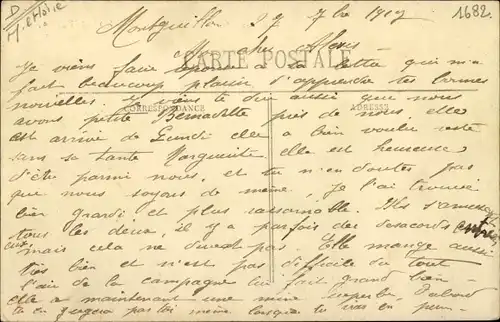 D
M. et Loire
1682
CARTE POSTALE
CORRESPONDANCE
ADRESSE
Montguillon 27 7bre 1909
Ma chère Alexis
Je viens faire réponse à ta lettre qui m'a
fait beaucoup plaisir d'apprendre tes bonnes
nouvelles. Je viens te dire aussi que nous
avons petite Bernadette près de nous, elle
est arrivé de Lundi elle a bien voulu resté
sans sa tante Marguerite elle est heureuse
d'être parmi nous, et tu n'en doutes pas
que nous soyons de même, Je l'ai trouvée
bien grandi et plus raisonnable. Ils s'amusent
tous les deux, il y a parfois des désacords entre
eux mais cela ne durent pas. Elle mange aussi
très bien et n'est pas difficile du tout
l'air de la campagne lui fait grand bien
elle a maintenant une mine superbe, D'abord
tu en jugera par toi même lorsque tu vas en